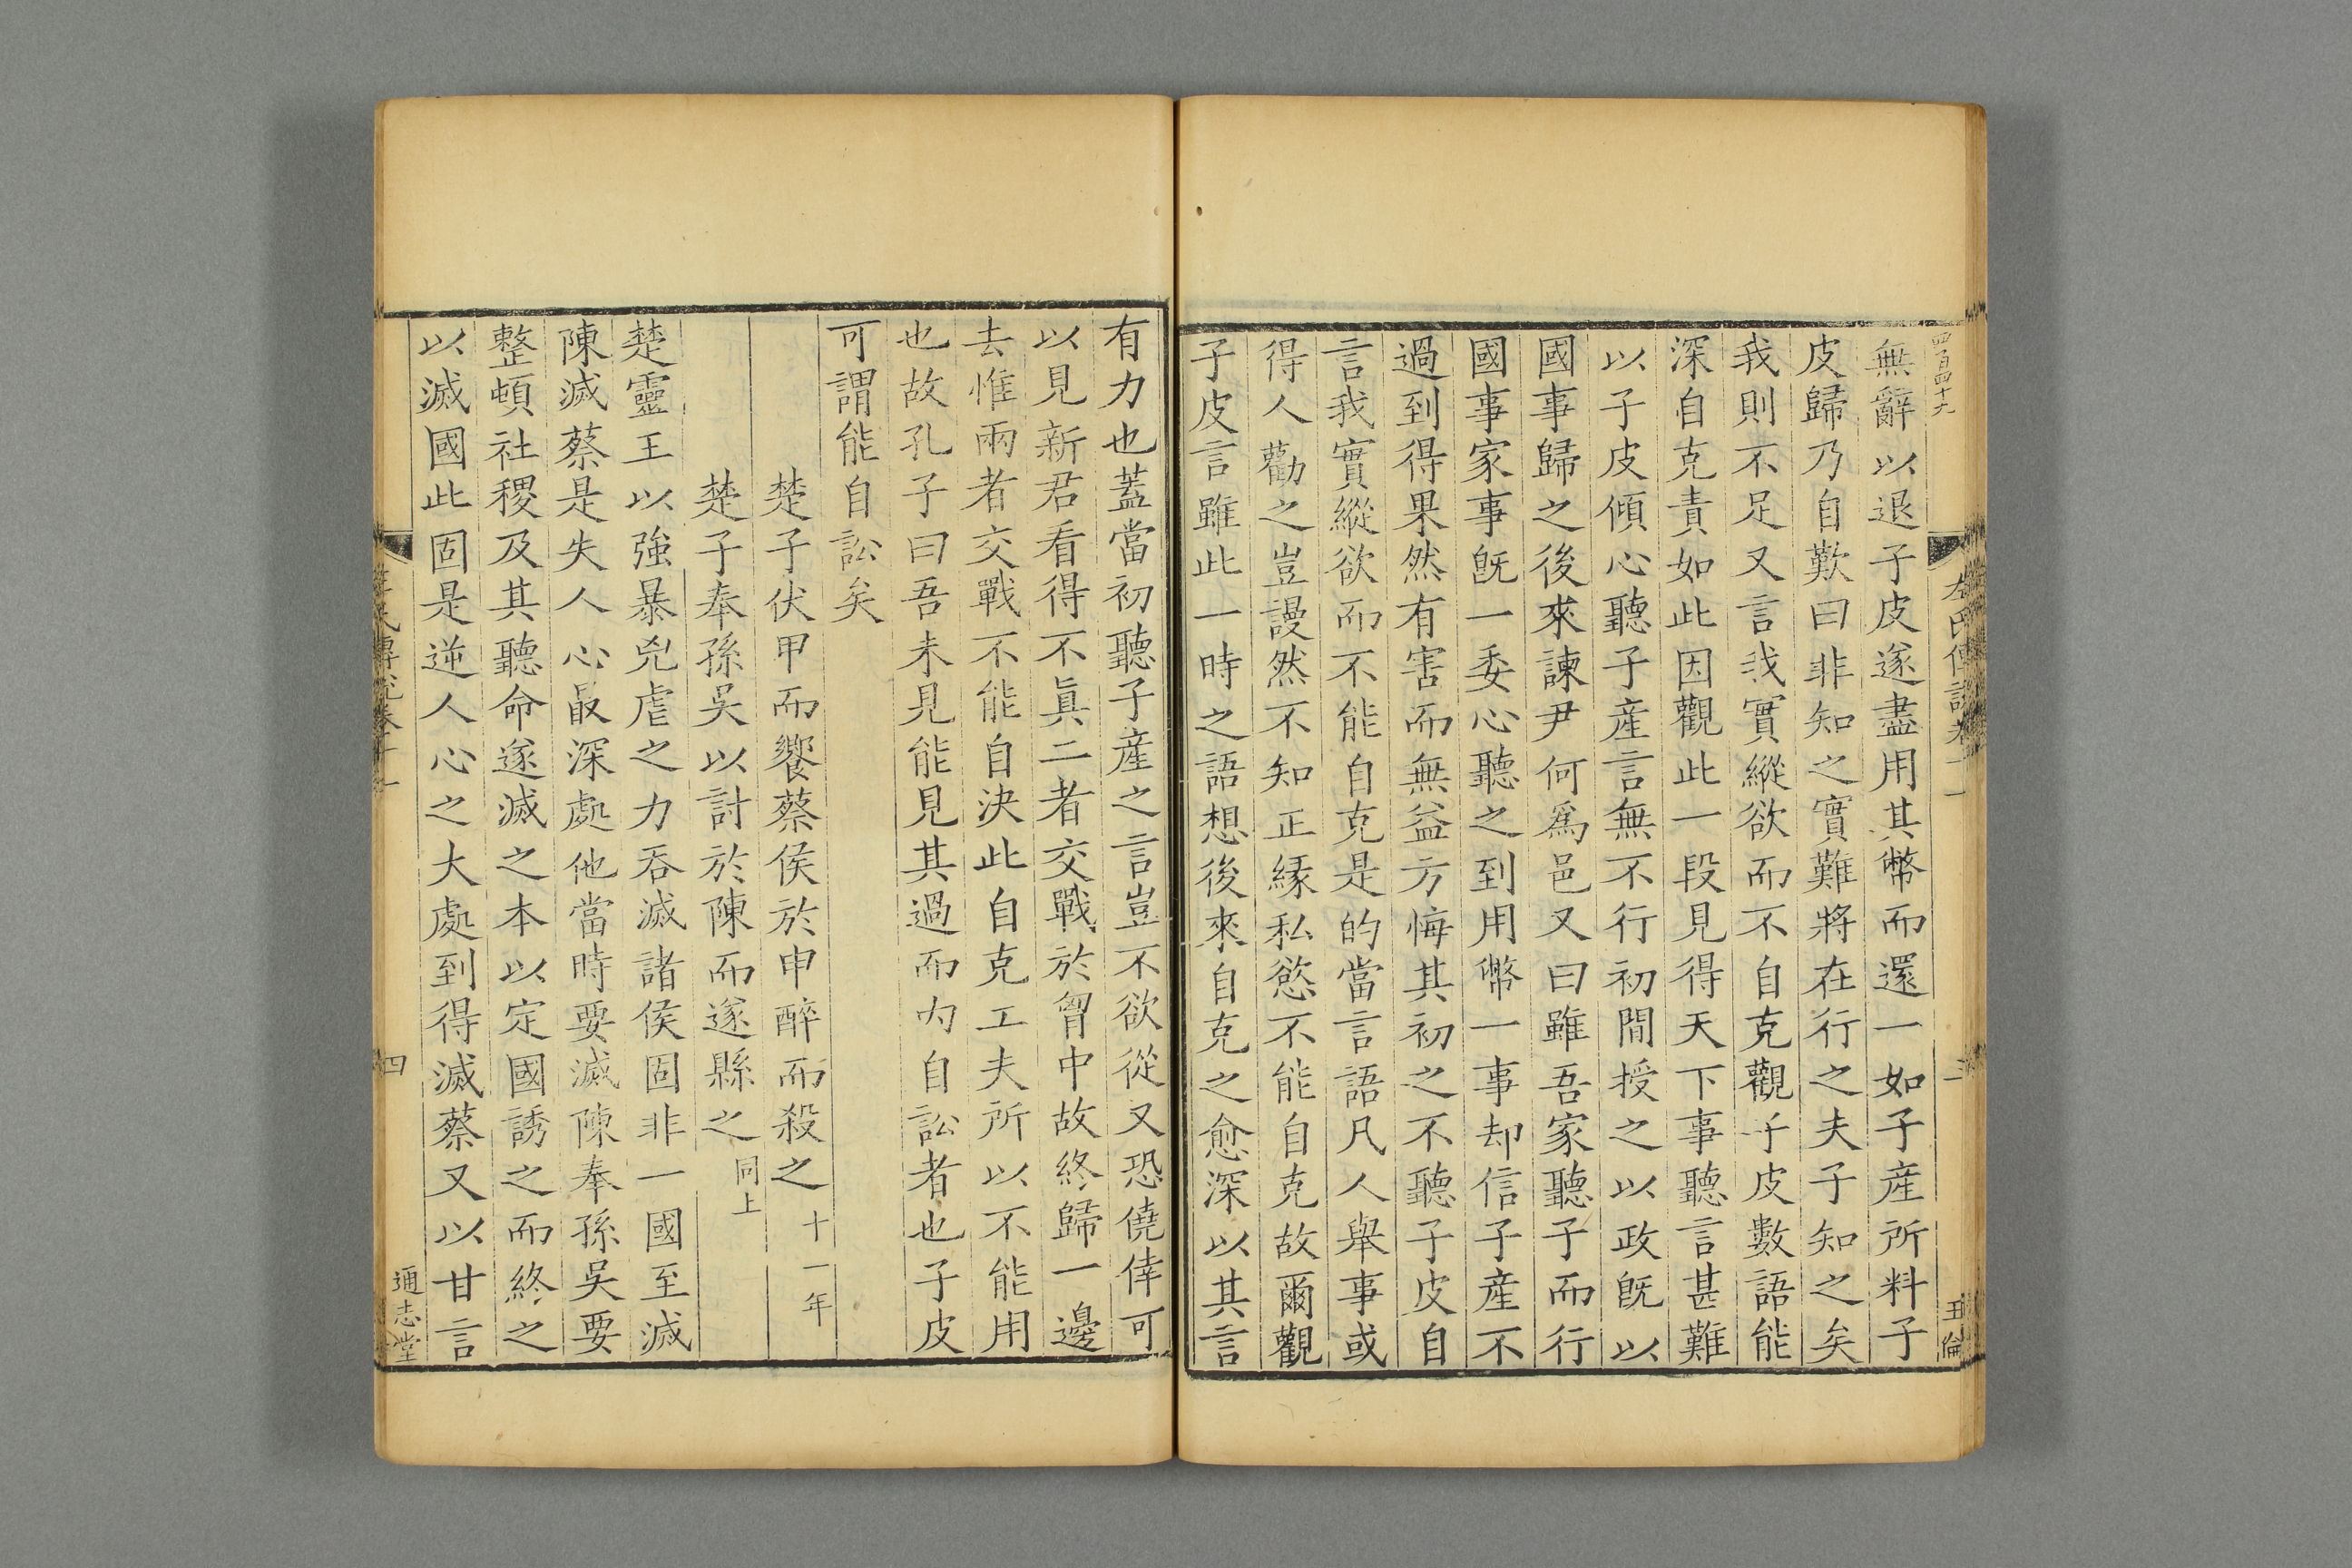 四百四十九
無辭以退子皮遂盡用其幣而還一如子産所料子
皮歸乃自歎曰非知之實難將在行之夫子知之矣
我則不足又言我實縱欲而不自克觀子皮數語能
深自克責如此因觀此一段見得天下事聽言甚難
以子皮傾心聽子産言無不行初間授之以政旣以
國事歸之後來諫尹何爲邑又曰雖吾家聽子而行
國事家事旣一委心聽之到用幣一事却信子産不
過到得果然有害而無益方悔其初之不聽子皮自
言我實縱欲而不能自克是的當言語凡人舉事或
得人勸之豈謾然不知正緣私慾不能自克故爾觀
子皮言雖此一時之語想後來自克之愈深以其言
有力也蓋當初聽子産之言豈不欲從又恐僥倖可
以見新君看得不眞二者交戰於胷中故終歸一邊
去惟兩者交戰不能自決此自克工夫所以不能用
也故孔子曰吾未見能見其過而内自訟者也子皮
可謂能自訟矣
楚子伏甲而饗蔡侯於申醉而殺之 十一年
楚子奉孫吳以討於陳而遂縣之 同上
楚靈王以強暴兇虐之力吞滅諸侯固非一國至滅
陳滅蔡是失人心最深處他當時要滅陳奉孫吳要
整頓社稷及其聽命遂滅之本以定國誘之而終之
以滅國此固是逆人心之大處到得滅蔡又以甘言
四
通志堂